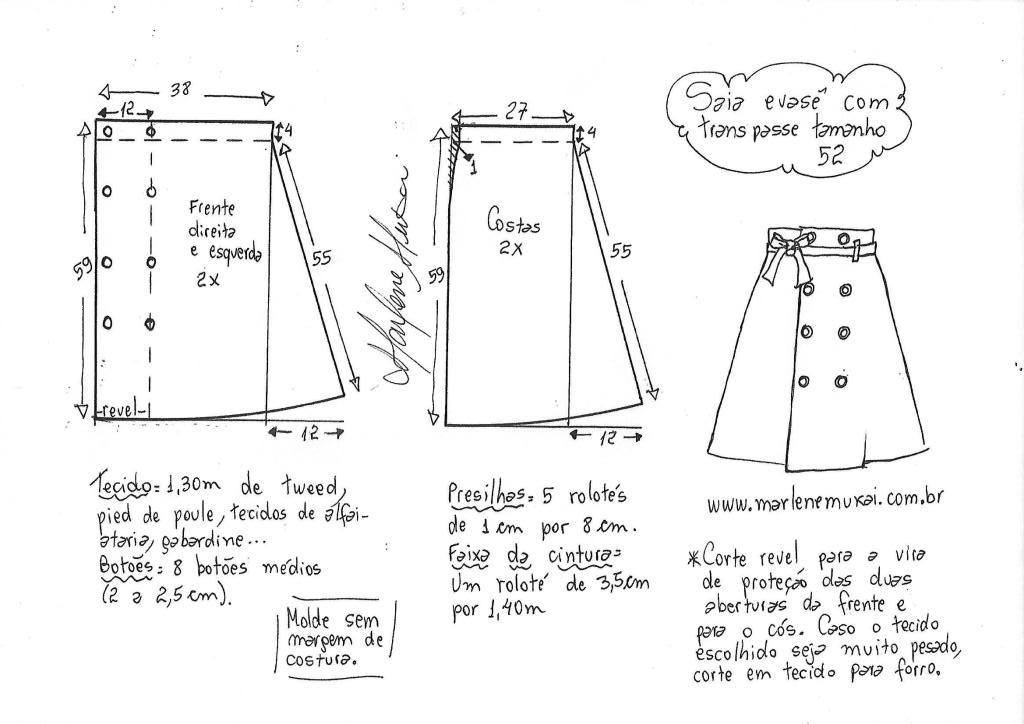 Saia evasê com
transpasse tamanho
52
38
12
4
59
55
Frente
direita
e esquerda
2x
revel
12
Marlene Mukai.
27
4
1
59
55
Costas
2x
12
Tecido= 1,30m de tweed,
pied de poule, tecidos de alfai-
ataria, gabardine...
Botões= 8 botões médios
(2 a 2,5cm).
Molde sem
margem de
costura.
Presilhas= 5 rolotés
de 1cm por 8cm.
Faixa da cintura=
Um roloté de 3,5cm
por 1,40m
www.marlenemukai.com.br
*Corte revel para a vira
de proteção das duas
aberturas da frente e
para o cós. Caso o tecido
escolhido seja muito pesado,
corte em tecido para forro.